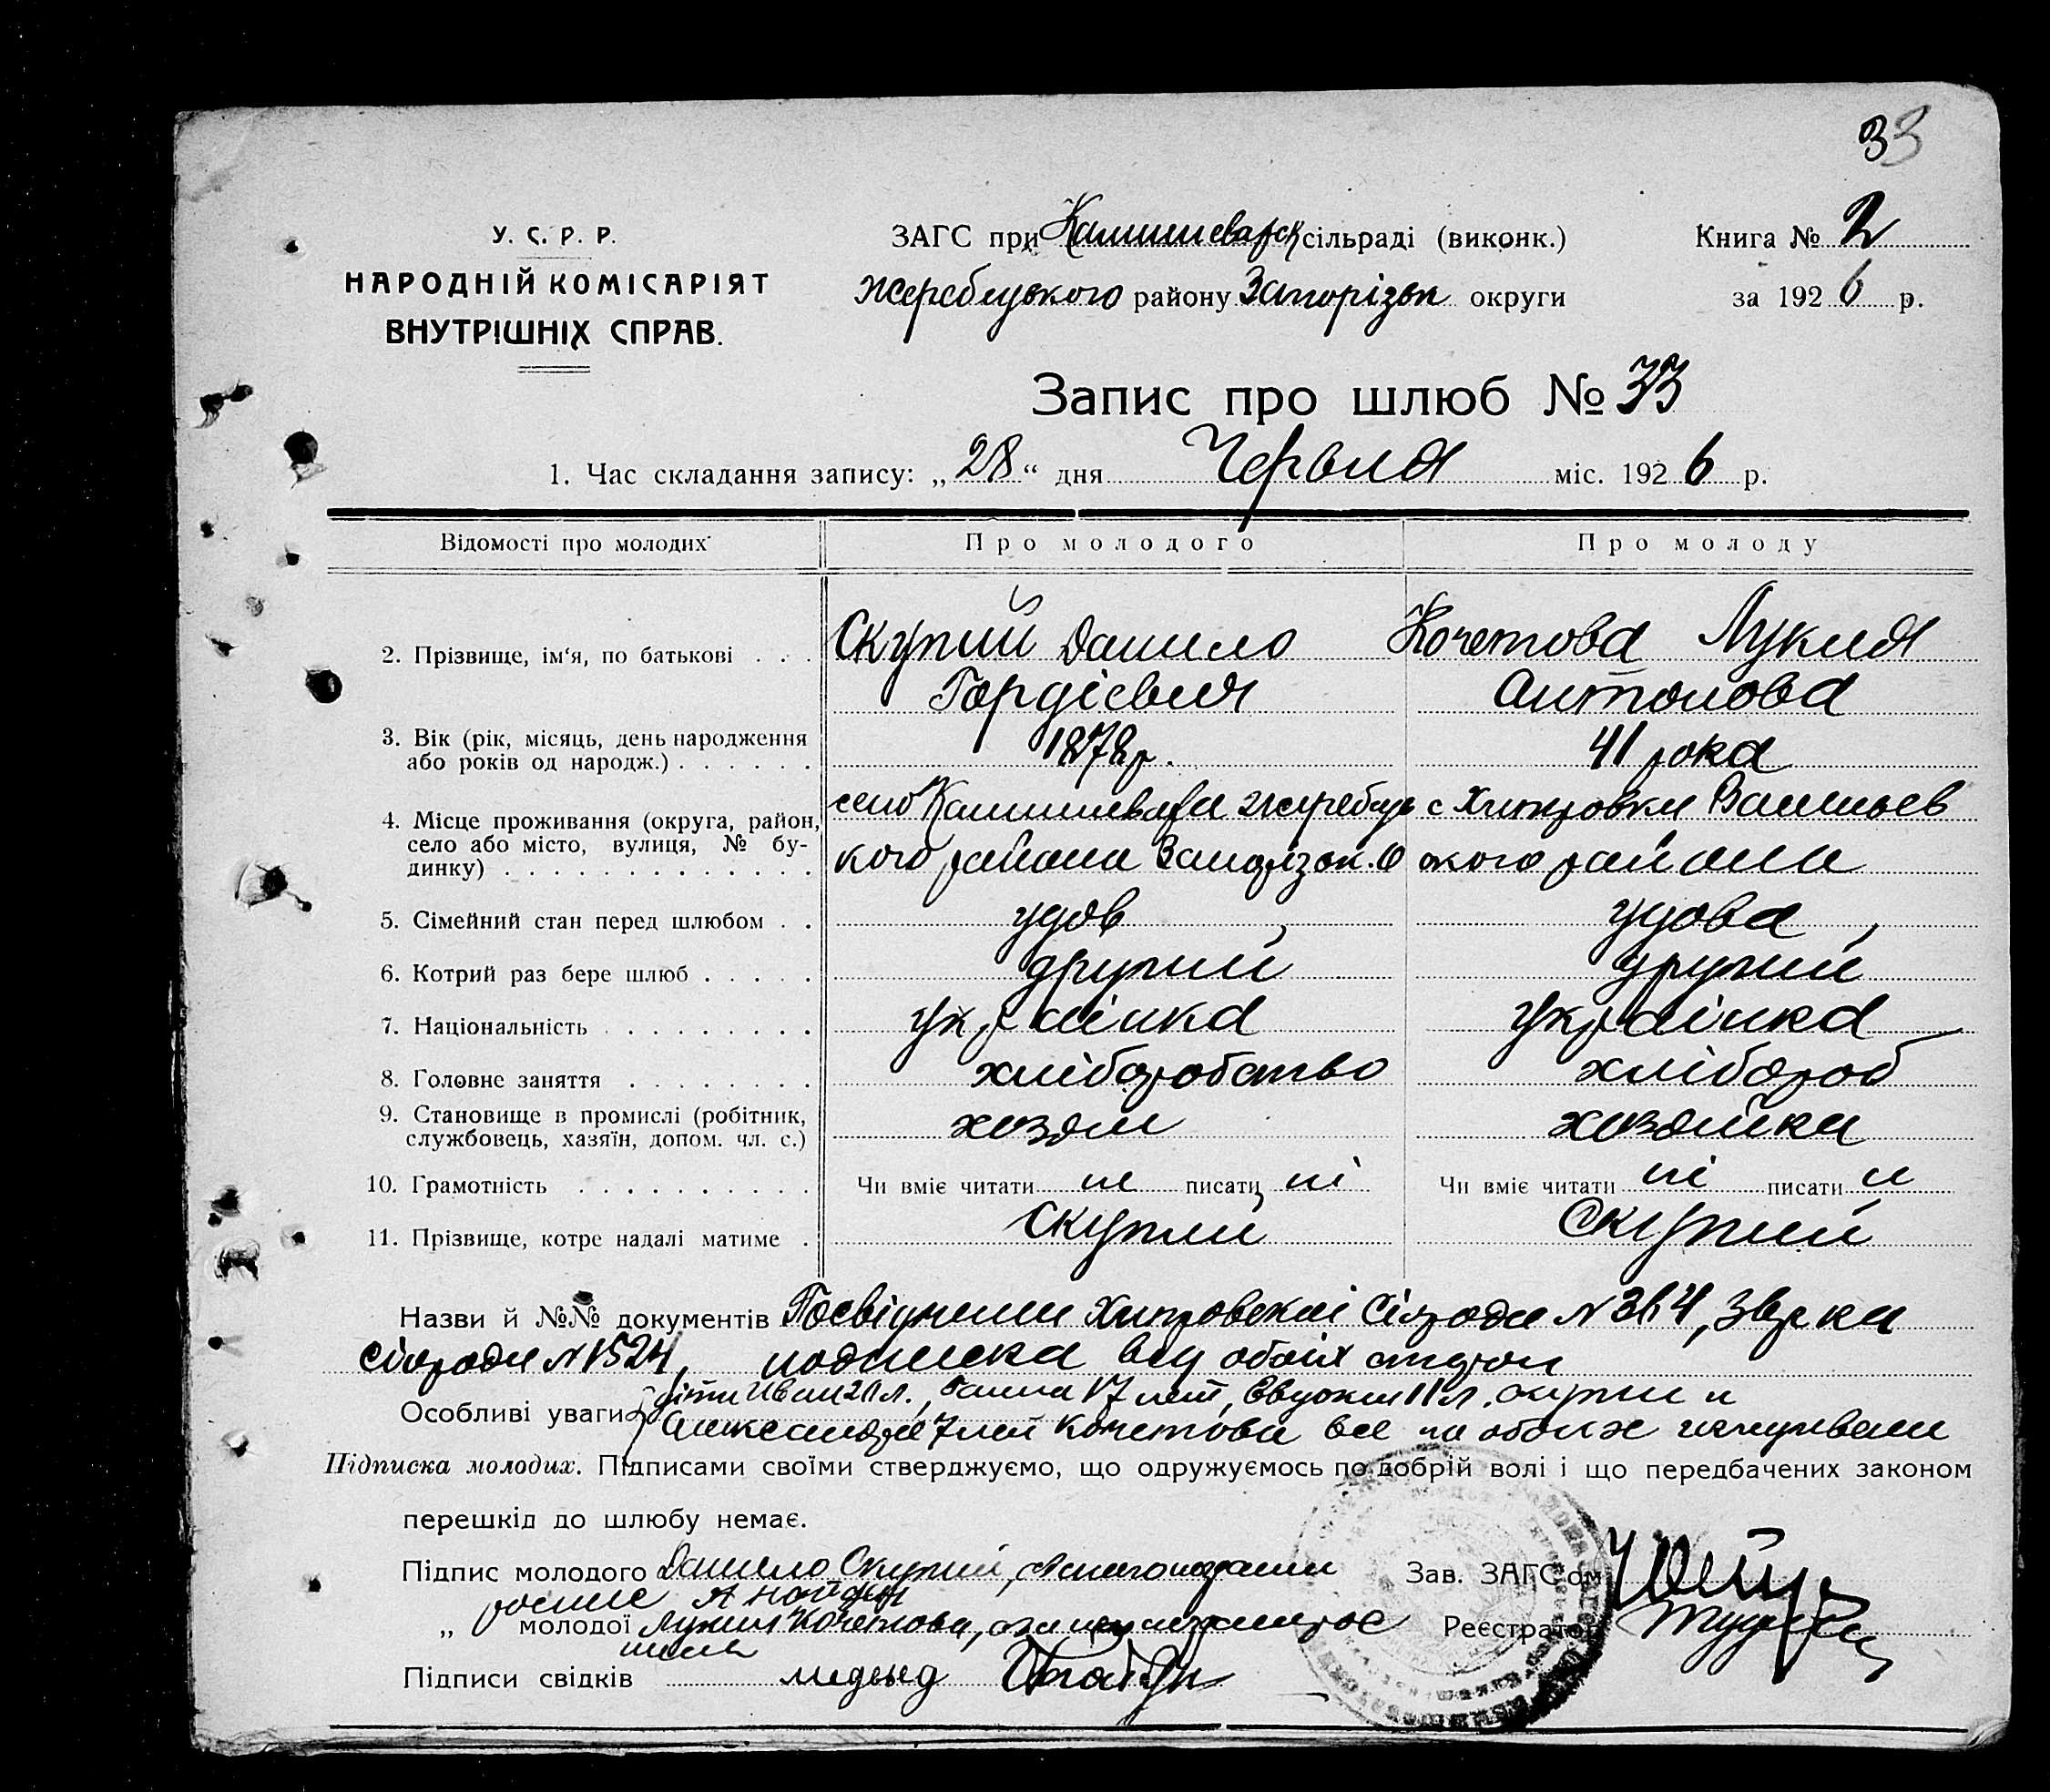 33
У. С. Р. Р.
НАРОДНІЙ КОМІСАРІЯТ
ВНУТРІШНІХ СПРАВ.
ЗАГС при Камишеварск сільраді (виконк.)
Жеребецького району Запорізьк округи
Книга № 2
за 1926 р.
Запис про шлюб № 33
1. Час складання запису: „28“ дня Червня міс. 1926 р.
Відомості про молодих
Про молодого
Про молоду
2. Прізвище, ім'я, по батькові . . .
Скупий Данило
Гордієвич
Кочетова Лукия
Антонова
3. Вік (рік, місяць, день народження
або років од народж.) . . . . . .
1878 р.
41 рока
4. Місце проживання (округа, район,
село або місто, вулиця, № бу-
динку) . . . . . . . . . . . . .
село Камишевара жеребець
кого района Запорізьк. о
с Хитровки Васильев
ского района
5. Сімейний стан перед шлюбом . .
удов
удова
6. Котрий раз бере шлюб . . . . .
другий
другий
7. Національність . . . . . . . . .
українка
українка
8. Головне заняття . . . . . . . .
хліборобство
хлібороб
9. Становище в промислі (робітник,
службовець, хазяїн, допом. чл. с.)
хозяин
хозяйка
10. Грамотність . . . . . . . . . .
Чи вміє читати ні писати ні
Чи вміє читати ні писати н
11. Прізвище, котре надалі матиме .
Скупий
Скупий
Назви й №№ документів Посвідчення Хитровскаї Сілради N 364,
сілради N 1524, подписка від обоїх сторон
Особливі уваги діти Иван 20 л., Ганна 17 лет, Евдокия 11 л. скупии и
Александра 7 лет Кочетова все на обоих
Підписка молодих. Підписами своїми стверджуємо, що одружуємось по добрій волі і що передбачених законом
перешкід до шлюбу немає.
Підпис молодого Данило Скупий,
„ молодої Лукия Кочетова,
Підписи свідків
Зав. ЗАГС'ом
Реєстратор